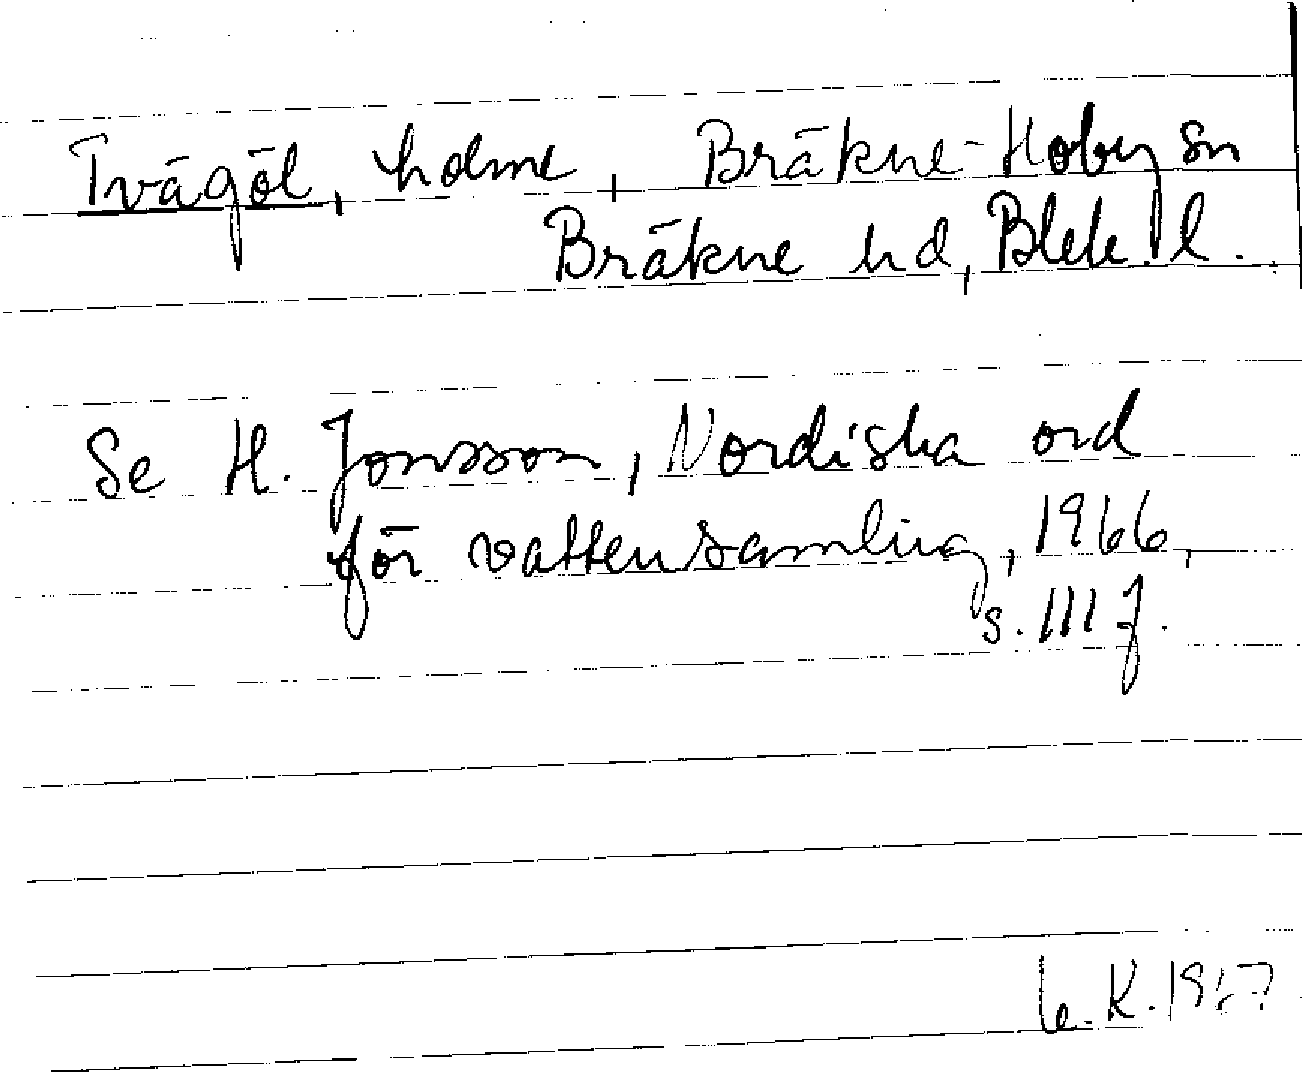 Tvägöl, holme, Bräkne-Hoby sn
Bräkne hd, Blek. l.
Se H. Jonsson, Nordiska ord
för vattensamling, 1966,
s. 111 f.
K. 1967